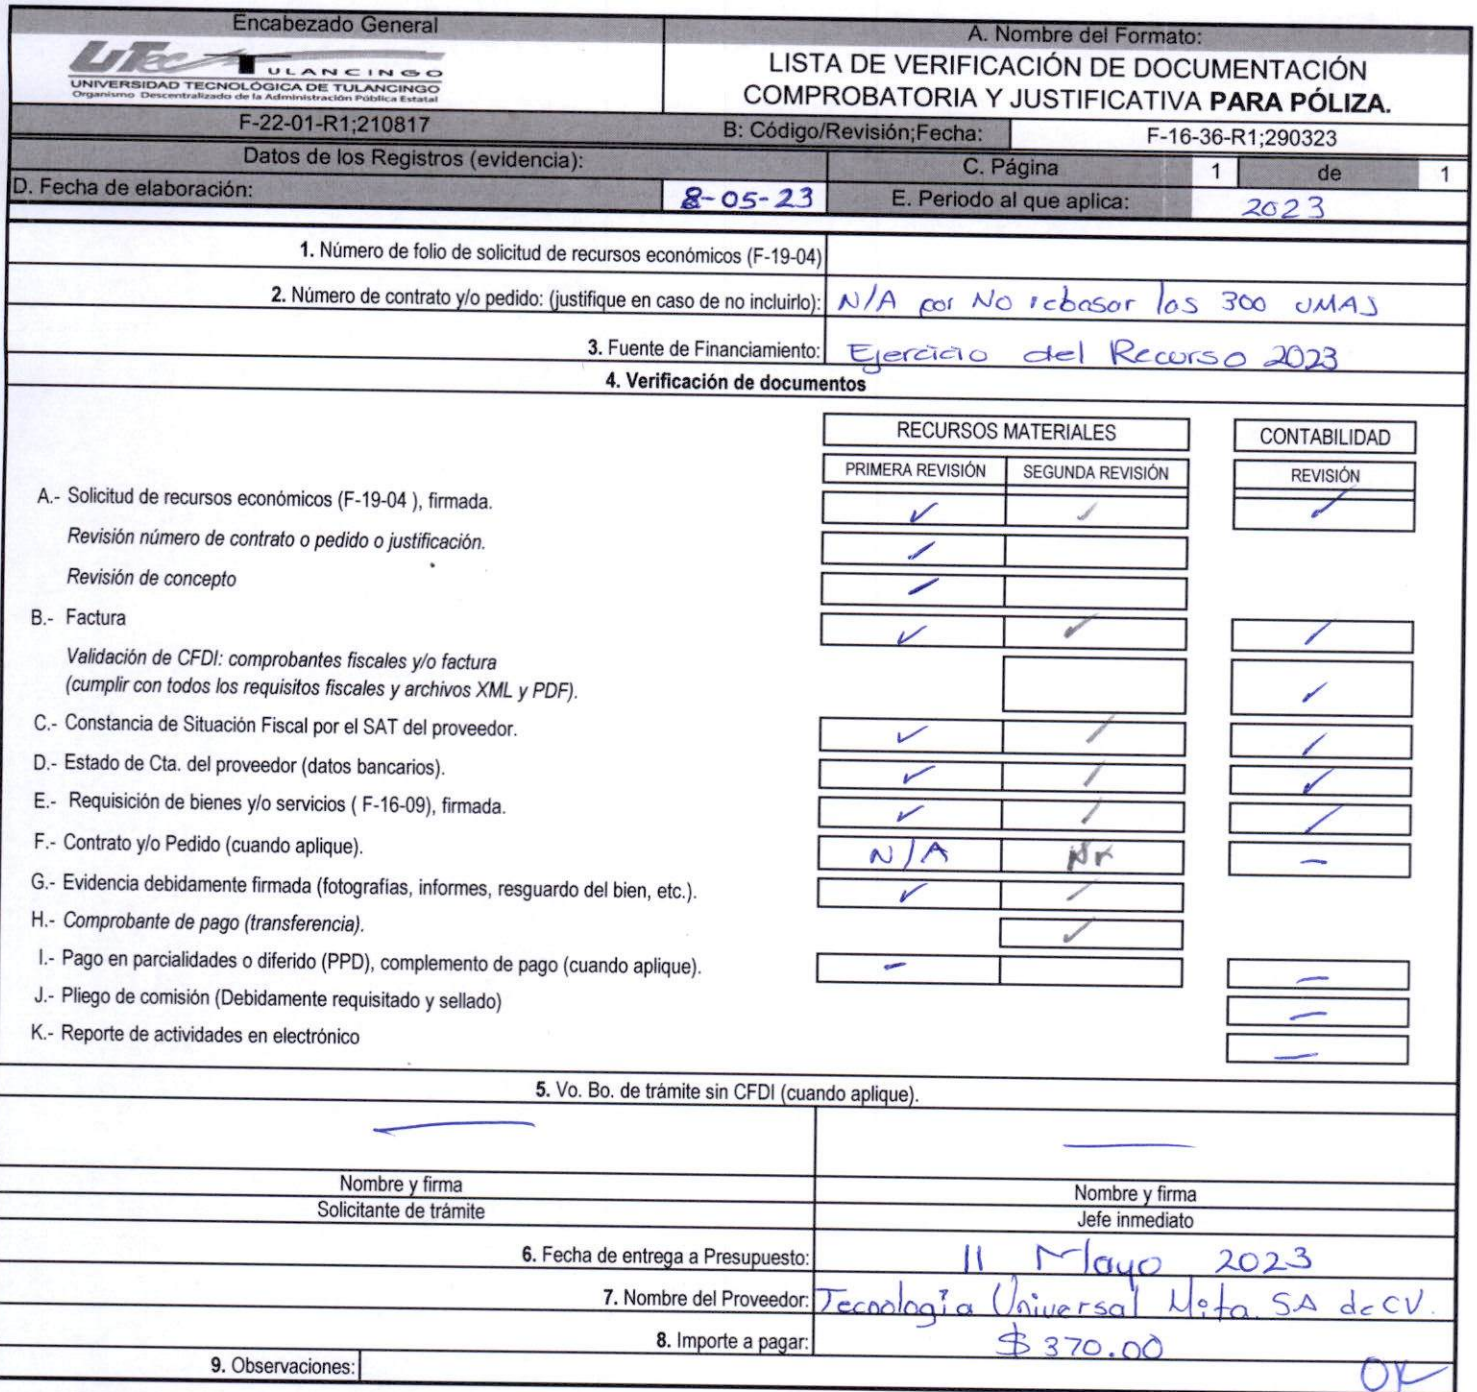 Encabezado General
A. Nombre del Formato:
UTec TULANCINGO
UNIVERSIDAD TECNOLÓGICA DE TULANCINGO
Organismo Descentralizado de la Administración Pública Estatal
LISTA DE VERIFICACIÓN DE DOCUMENTACIÓN
COMPROBATORIA Y JUSTIFICATIVA PARA PÓLIZA.
F-22-01-R1;210817
B: Código/Revisión;Fecha:
F-16-36-R1;290323
Datos de los Registros (evidencia):
C. Página 1 de 1
D. Fecha de elaboración: 8-05-23
E. Periodo al que aplica: 2023
1. Número de folio de solicitud de recursos económicos (F-19-04)
2. Número de contrato y/o pedido: (justifique en caso de no incluirlo): N/A por No rebasar las 300 UMAS
3. Fuente de Financiamiento: Ejercicio del Recurso 2023
4. Verificación de documentos
RECURSOS MATERIALES CONTABILIDAD
PRIMERA REVISIÓN SEGUNDA REVISIÓN REVISIÓN
A.- Solicitud de recursos económicos (F-19-04 ), firmada. ✓ ✓ ✓
Revisión número de contrato o pedido o justificación. ✓
Revisión de concepto ✓
B.- Factura ✓ ✓ ✓
Validación de CFDI: comprobantes fiscales y/o factura
(cumplir con todos los requisitos fiscales y archivos XML y PDF). ✓
C.- Constancia de Situación Fiscal por el SAT del proveedor. ✓ ✓ ✓
D.- Estado de Cta. del proveedor (datos bancarios). ✓ ✓ ✓
E.- Requisición de bienes y/o servicios ( F-16-09), firmada. ✓ ✓ ✓
F.- Contrato y/o Pedido (cuando aplique). N/A –
G.- Evidencia debidamente firmada (fotografías, informes, resguardo del bien, etc.). ✓ ✓
H.- Comprobante de pago (transferencia). ✓
I.- Pago en parcialidades o diferido (PPD), complemento de pago (cuando aplique). – –
J.- Pliego de comisión (Debidamente requisitado y sellado) –
K.- Reporte de actividades en electrónico –
5. Vo. Bo. de trámite sin CFDI (cuando aplique).
Nombre y firma
Solicitante de trámite
Nombre y firma
Jefe inmediato
6. Fecha de entrega a Presupuesto: 11 Mayo 2023
7. Nombre del Proveedor: Tecnología Universal SA de CV.
8. Importe a pagar: $ 370.00
9. Observaciones: OK